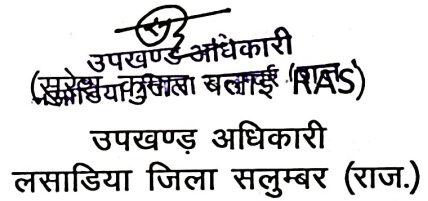 उपखण्ड अधिकारी
(सुरेश कुमार बलाई RAS)
उपखण्ड़ अधिकारी
लसाडिया जिला सलुम्बर (राज.)